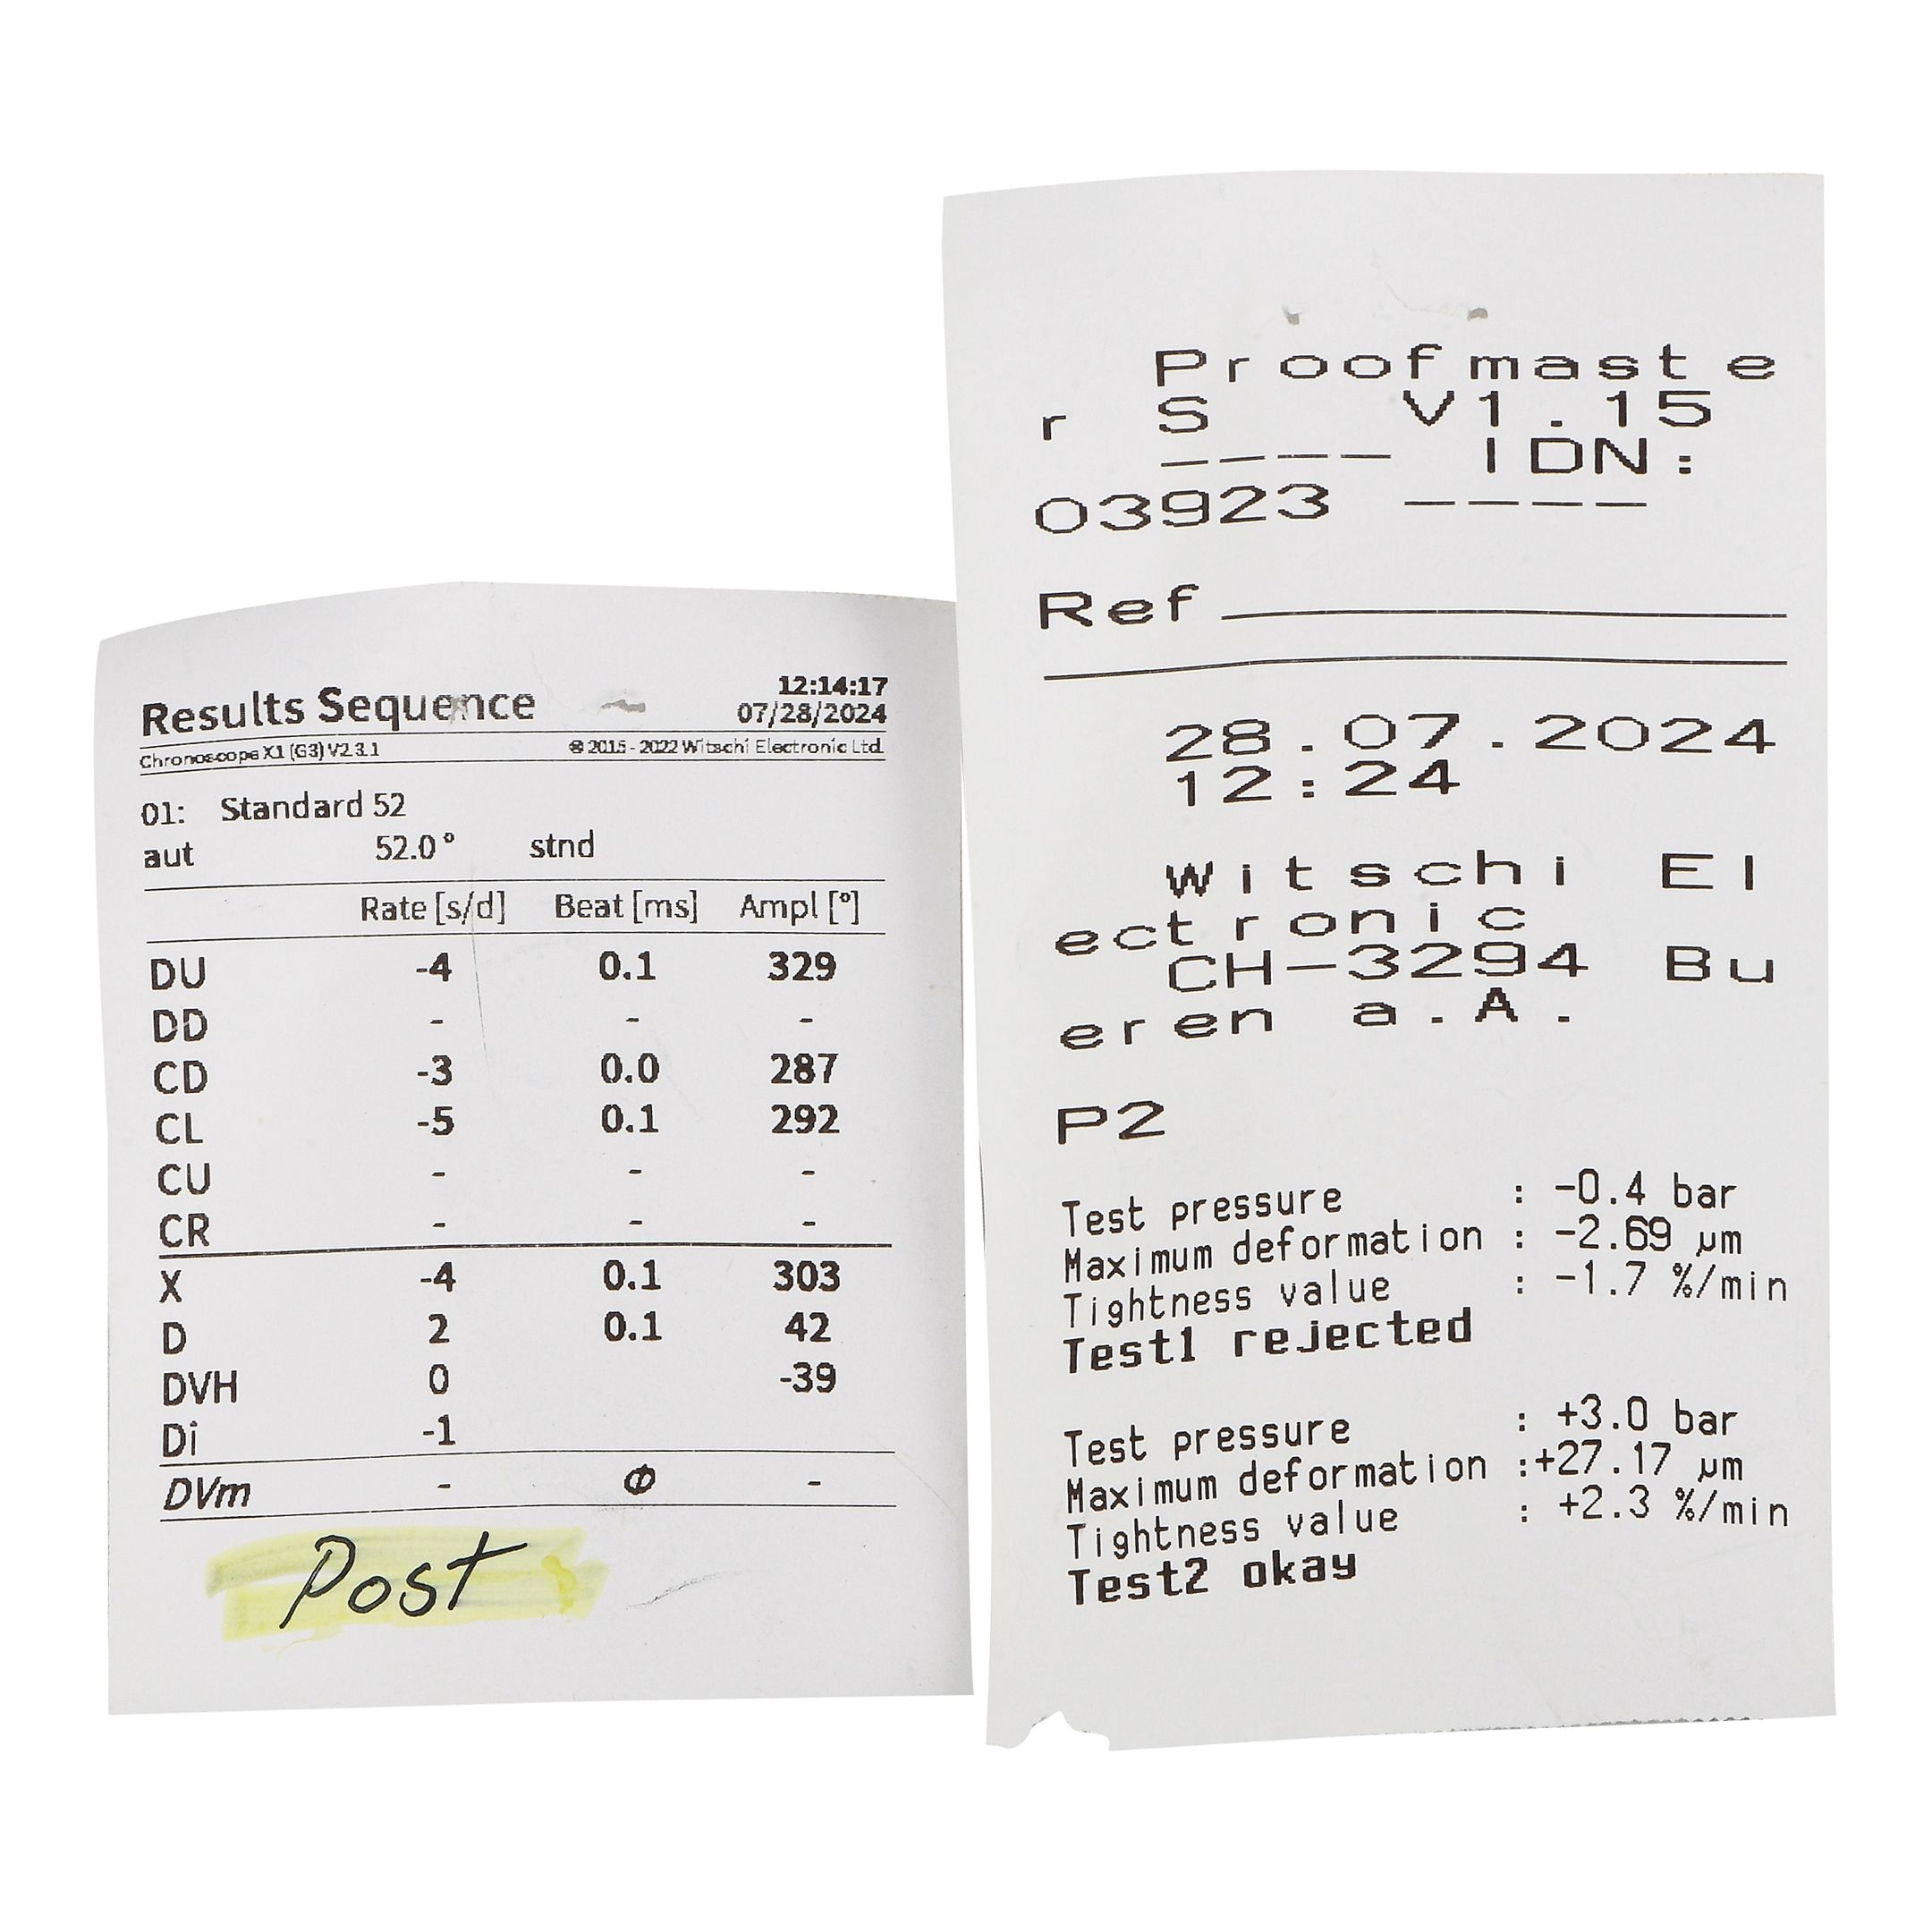 Results Sequence
12:14:17
07/28/2024
Chronoscope X1 (G3) V2.3.1 © 2015 - 2022 Witschi Electronic Ltd.
01: Standard 52
aut 52.0° stnd
Rate [s/d] Beat [ms] Ampl [°]
DU -4 0.1 329
DD - - -
CD -3 0.0 287
CL -5 0.1 292
CU - - -
CR - - -
X -4 0.1 303
D 2 0.1 42
DVH 0 -39
Di -1
DVm - Φ -
Post
Proofmaste
r S V1.15
---- IDN:
03923 ----
Ref
28.07.2024
12:24
Witschi El
ectronic
CH-3294 Bu
eren a.A.
P2
Test pressure : -0.4 bar
Maximum deformation : -2.69 µm
Tightness value : -1.7 %/min
Test1 rejected
Test pressure : +3.0 bar
Maximum deformation :+27.17 µm
Tightness value : +2.3 %/min
Test2 okay